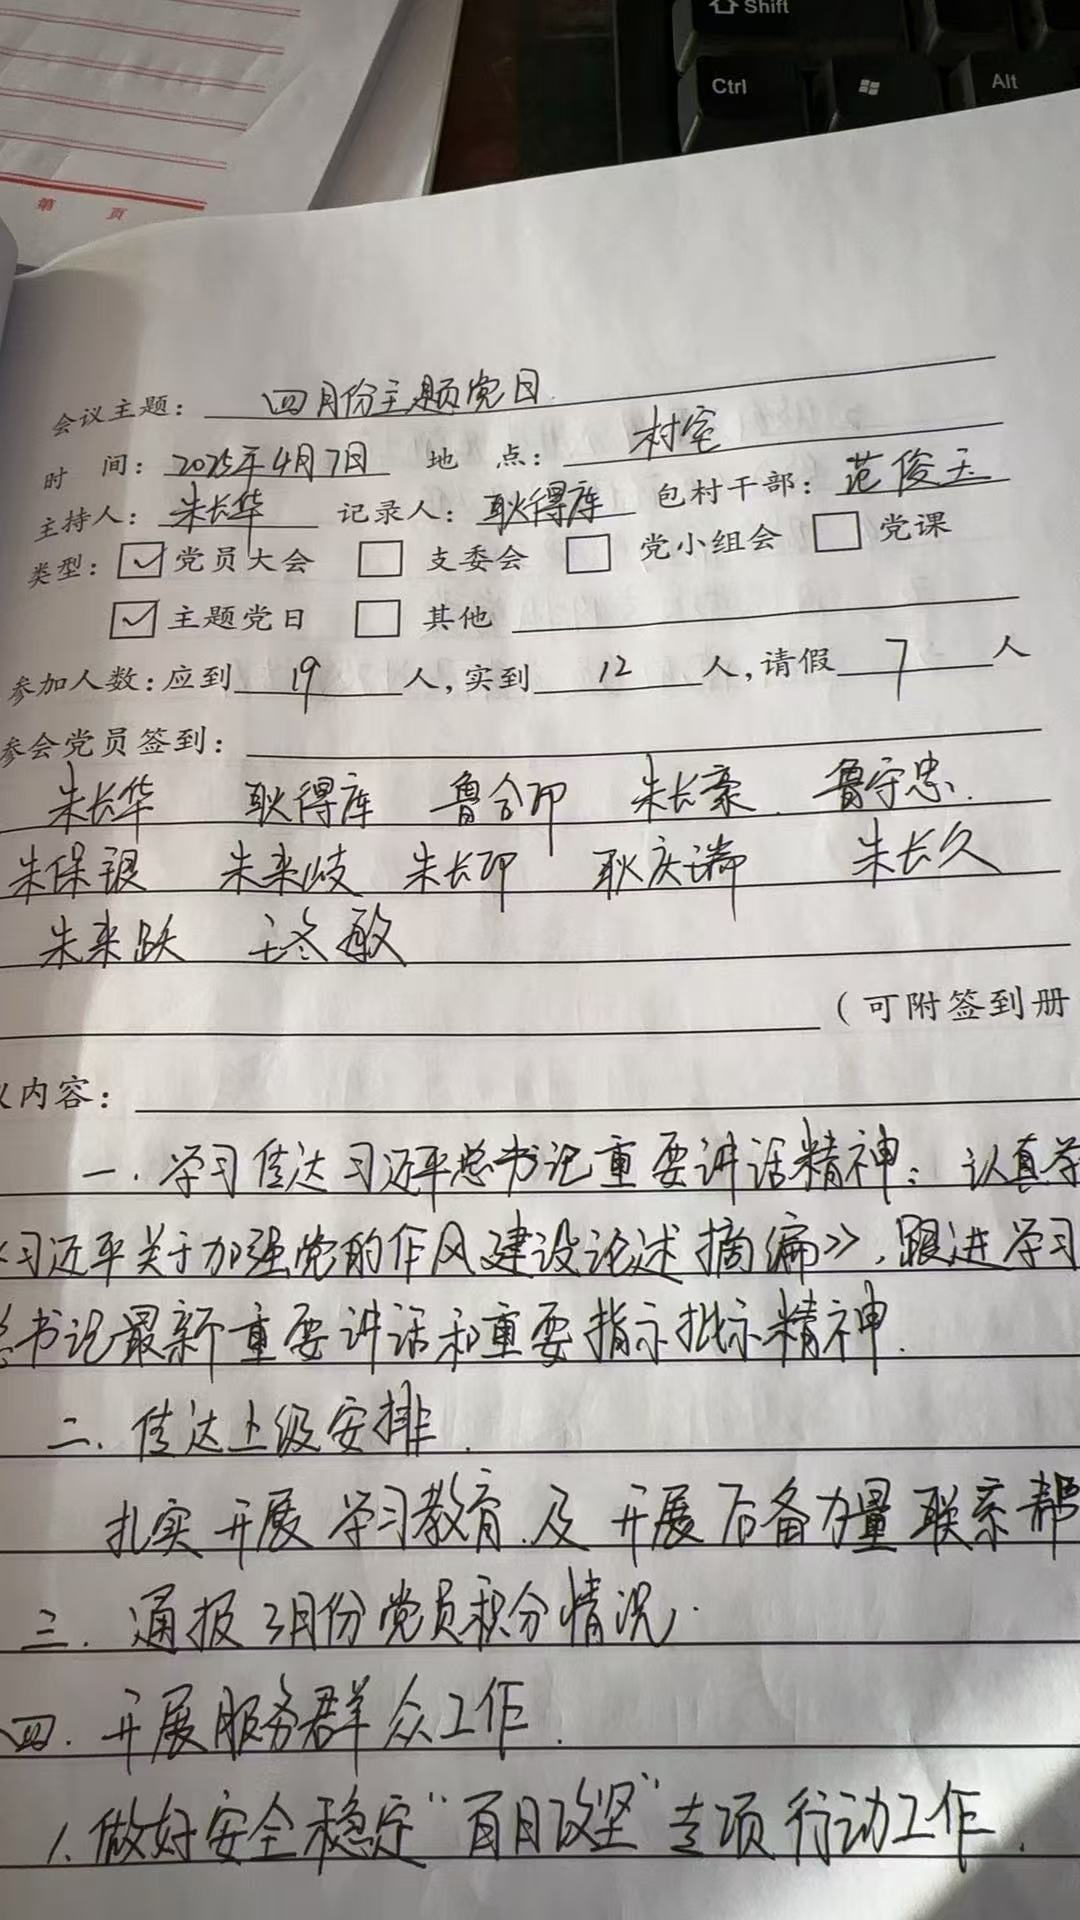 Shift
Ctrl
Alt
第 页
会议主题：四月份主题党日
时 间：2025年4月7日 地 点：村室
主持人：朱长华 记录人：耿得库 包村干部：范俊玉
类型：☑党员大会 □支委会 □党小组会 □党课
☑主题党日 □其他
参加人数：应到19人，实到12人，请假7人
参会党员签到：
朱长华 耿得库 鲁合印 朱长豪 鲁守忠
朱保银 朱来岐 朱长印 耿庆瑞 朱长久
朱来跃 王冬敏
（可附签到册
议内容：
一、学习传达习近平总书记重要讲话精神：认真学
《习近平关于加强党的作风建设论述摘编》，跟进学习
总书记最新重要讲话和重要指示批示精神．
二、传达上级安排．
扎实开展学习教育．及开展后备力量联系帮
三．通报3月份党员积分情况．
四．开展服务群众工作．
1、做好安全稳定“百日攻坚”专项行动工作．